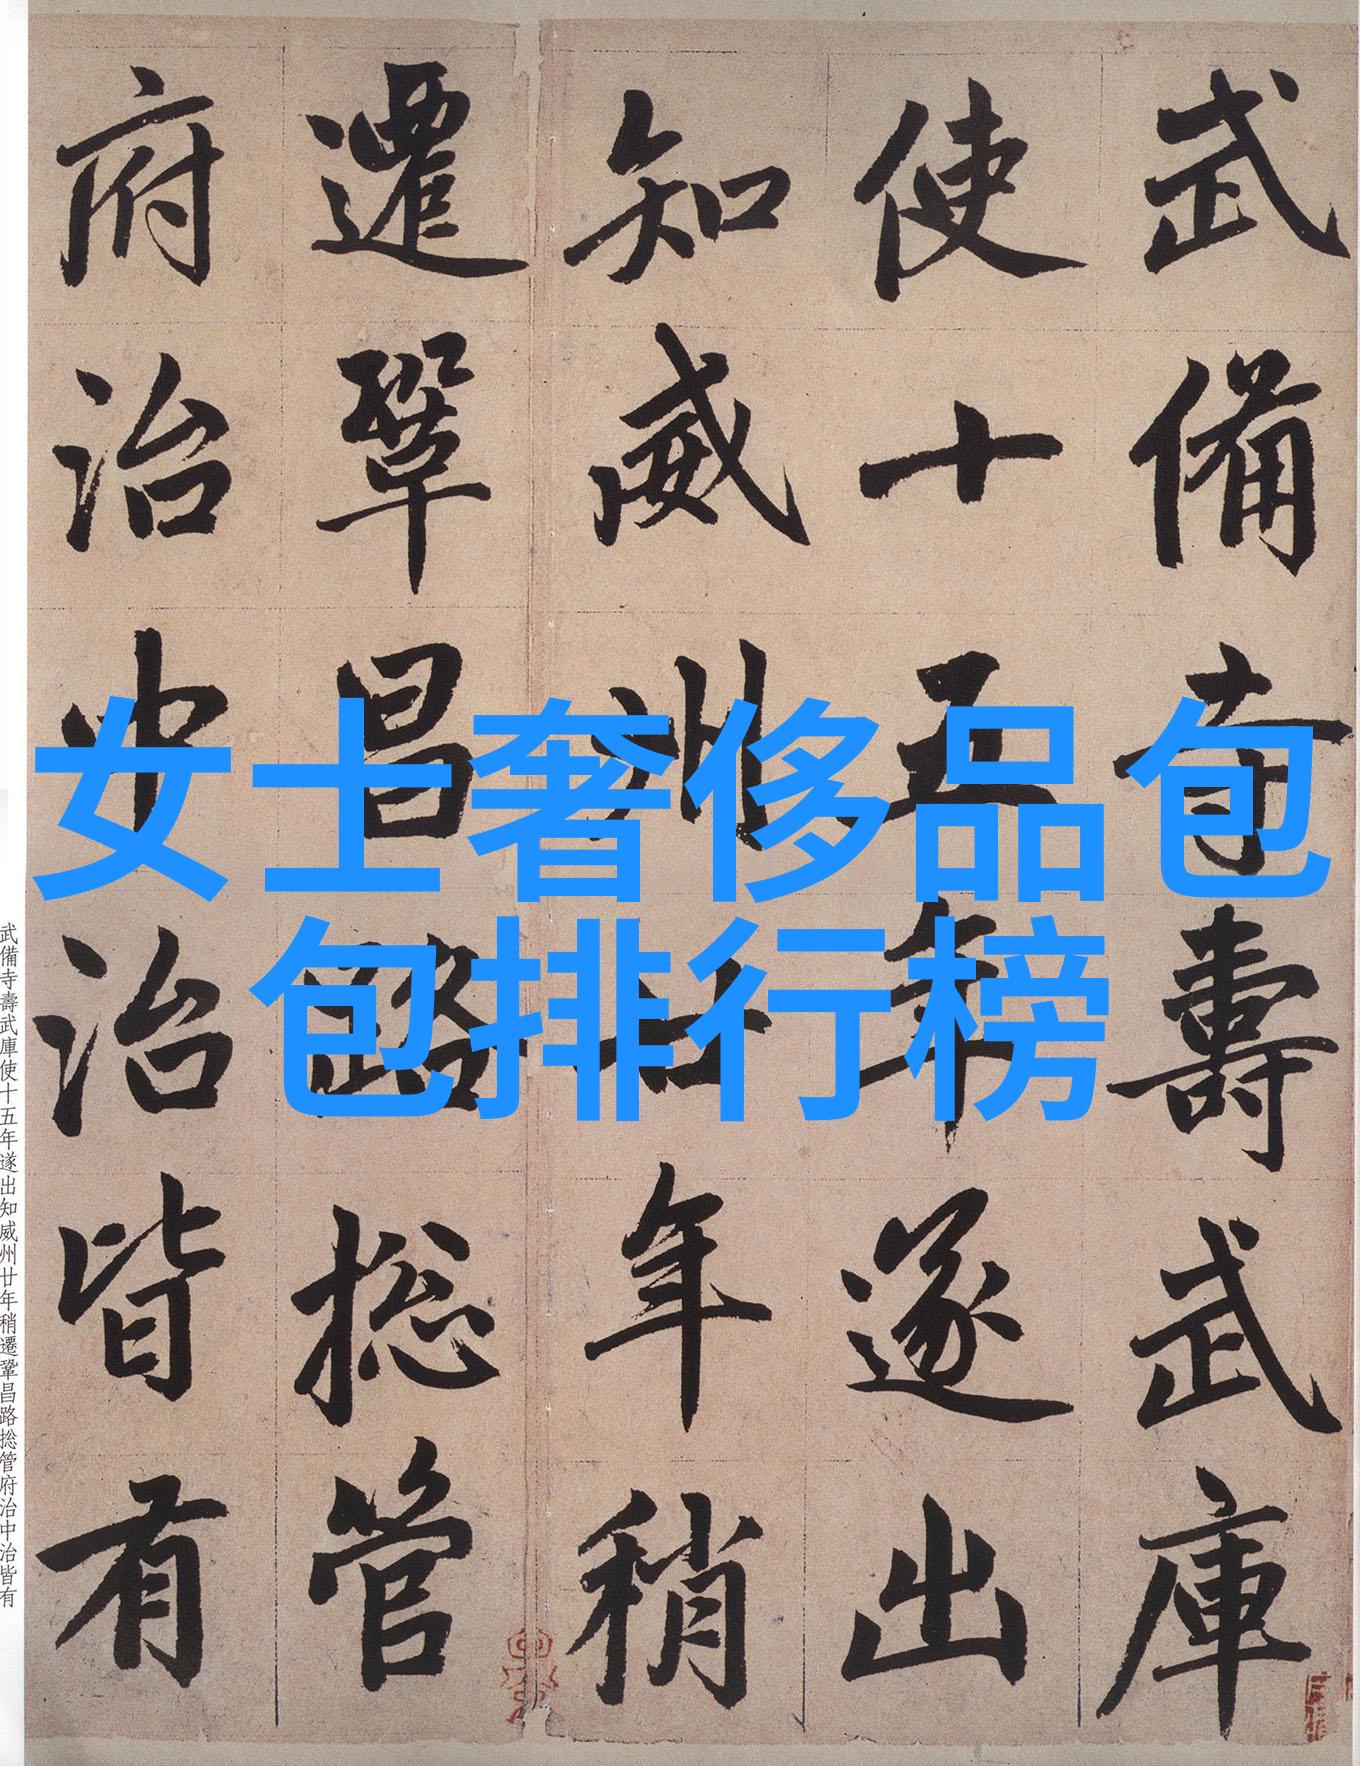 武備寺壽武庫
使十五年遂出
知威州廿年稍
遷鞏昌路捴管
府治中治皆有
女士奢侈品包
包排行榜
武備寺壽武庫使十五年遂出知威州廿年稍遷鞏昌路捴管府治中治皆有